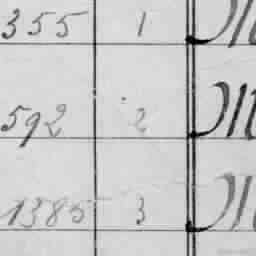 355 1 M
592 2 M
1385 3 M